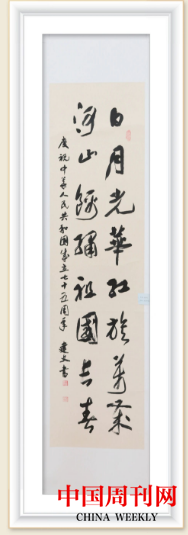 日月光華紅旗萬歲
河山錦繡祖國長春
慶祝中華人民共和國成立七十五周年 建文書
中国周刊网
CHINA WEEKLY